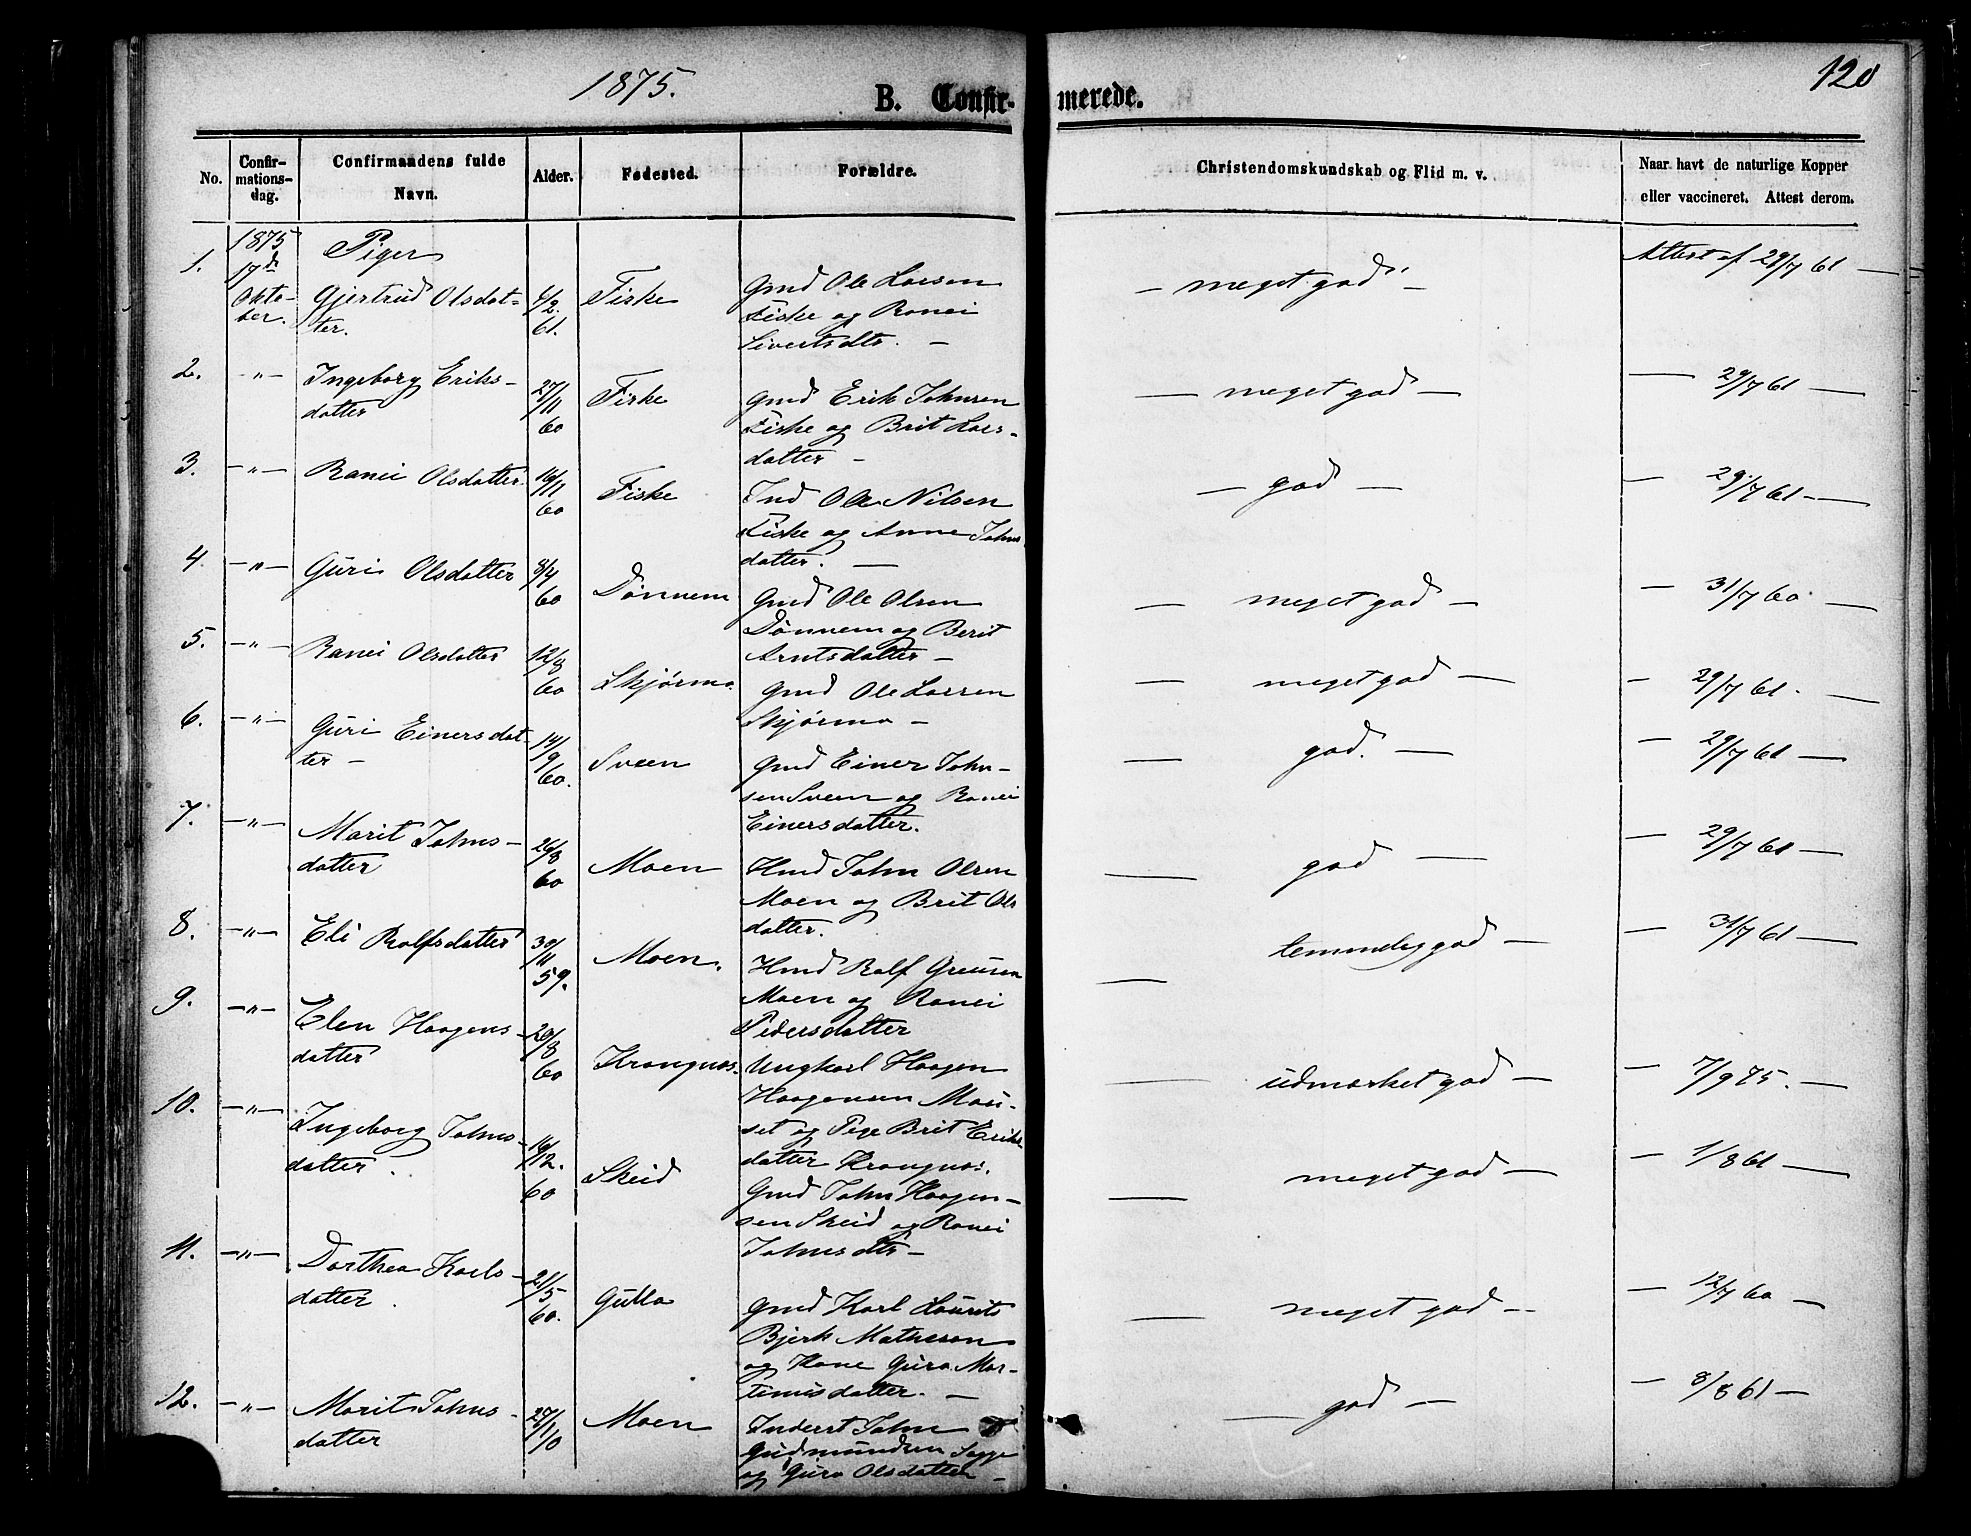 1875.
120
B. Confir-merede.
No.
Confir-
mations-
dag.
Confirmandens fulde
Navn.
Alder.
Fødested.
Forældre.
Christendomskundskab og Flid m. v.
Naar havt de naturlige Kopper
eller vaccineret. Attest derom.
1.
1875
17de
Okto-
ber.
Piger
Gjertrud Olsdat-
ter.
4/2.
61.
Fiske
Gmd Ole Larsen
Fiske og Ranei
Sivertsdtr. —
— meget god —
Attest af 29/7 61 —
2.
-"-
Ingeborg Eriks-
datter
27/11
60
Fiske
Gmd Erik Johnsen
Fiske og Brit Lars-
datter —
— meget god —
— 29/7 61 —
3.
-"-
Ranei Olsdatter
16/11
60
Fiske
Ind Ole Nilsen
Fiske og Anne Johns
datter. —
— god —
— 29/7 61 —
4.
-"-
Guri Olsdatter
8/4
60
Dønnem
Gmd Ole Olsen
Dønnem og Berit
Arntsdatter —
— meget god —
— 31/7 60. —
5.
-"-
Ranei Olsdatter
12/8
60
Skjørmo.
Gmd Ole Larsen
Skjørmo —
— meget god —
— 29/7 61. —
6.
-"-
Guri Einersdat-
ter —
14/9
60.
Sveen
Gmd Einer John-
sen Sveen og Ranei
Einersdatter.
— god. —
— 29/7 61 —
7.
-"-
Marit Johns-
datter
26/8
60
Moen
Hmd John Olsen
Moen og Brit Ols
datter.
— god —
— 29/7 61 —
8.
-"-
Eli Rolfsdatter
30/11
59.
Moen.
Hmd Rolf
Moen og Ranei
Pedersdatter
— temmelig god —
— 31/7 61 —
9.
-"-
Elen Haagens-
datter
28/8
60
Krangnæs.
Ungkarl Haagen
Haagensen Mou-
set og Pige Brit Eriks
datter Krangnæs.
— udmærket god —
— 7/9 75. —
10.
-"-
Ingeborg Johns-
datter.
19/12.
60
Skeid
Gmd John Haagen-
sen Skeid og Ranei
Johnsdtr —
— meget god —
— 1/8 61 —
11.
-"-
Dorthea Karls-
datter.
21/5
60.
Gulla
Gmd Karl Laurits
Bjerk Matheson
og Kone Guro Mar-
tinusdatter. —
— meget god —
— 12/7 60 —
12.
-"-
Marit Johns-
datter
Moen
Inderst John
Gudmundsen
og Guro Olsdatter —
— god —
— 8/8 61 —